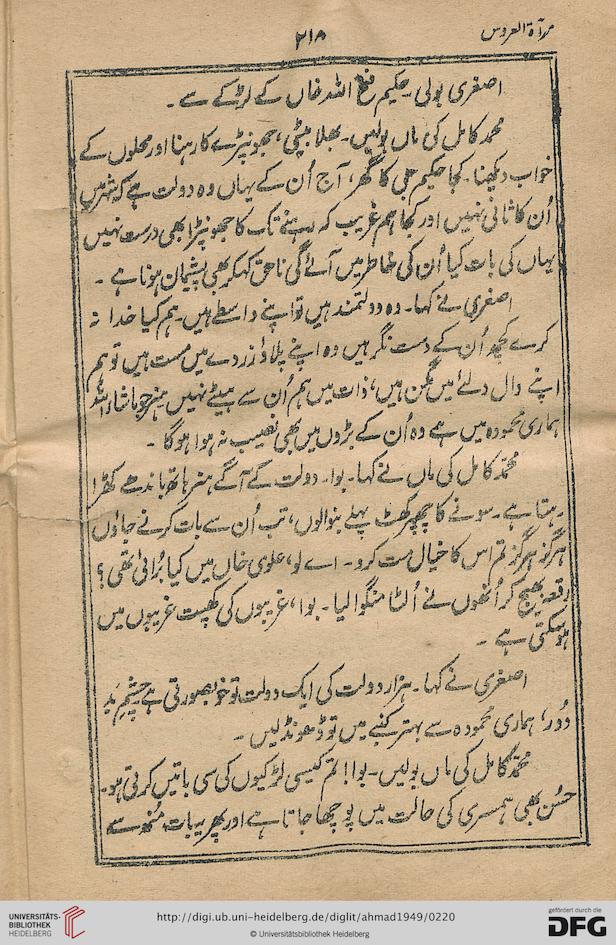 مرآۃ العروس
۲۱۸
اصغری بولی۔ حکیم فتح اللہ خاں کے لڑکے سے۔
محمد کامل کی ماں بولیں۔ بھلا بیٹی، جھونپڑے کا رہنا اور محلوں کے
خواب دیکھنا۔ کجا حکیم جی کا گھر، آج اُن کے یہاں وہ دولت ہے کہ شہر میں
اُن کا ثانی نہیں اور کجا ہم غریب کہ رہنے تک کا جھونپڑا بھی درست نہیں
یہاں کی بات کیا اُن کی خاطر میں آئے گی ناحق کہکر بھی پشیمان ہونا ہے۔
اصغری نے کہا۔ وہ دولتمند ہیں تو اپنے واسطے ہیں۔ ہم کیا خدا نہ
کرے کچھ اُن کے دست نگر ہیں وہ اپنے پلاؤ زردے میں مست ہیں تو ہم
اپنے دال دلئے میں مگن ہیں، ذات میں ہم اُن سے ہیٹے نہیں ہنر جو ماشاءاللہ
ہماری محمودہ میں ہے وہ اُن کے بڑوں میں بھی نصیب نہ ہوا ہوگا۔
محمد کامل کی ماں نے کہا۔ بوا۔ دولت کے آگے ہنر ہاتھ باندھے کھڑا
رہتا ہے۔ سونے کا چھپرکھٹ پہلے بنوالوں، تب اُن سے بات کرنے جاؤں
ہرگز ہرگز تم اس کا خیال مت کرو۔ اے لو، علوی خاں میں کیا بُرائی تھی؟
رقعہ بھیج کر اُنھوں نے اُلٹا منگوا لیا۔ بوا، غریبوں کی کھپت غریبوں میں
ہوسکتی ہے۔
اصغری نے کہا۔ ہزار دولت کی ایک دولت تو خوبصورتی ہے چشمِ بَد
دُور، ہماری محمودہ سے بہتر کنبے میں تو ڈھونڈ لیں۔
محمد کامل کی ماں بولیں۔ بوا! تم کیسی لڑکیوں کی سی باتیں کرتی ہو۔
حُسن بھی ہمسری کی حالت میں پوچھا جاتا ہے اور پھر یہ بات مُنہ سے
UNIVERSITÄTS-
BIBLIOTHEK
HEIDELBERG
http://digi.ub.uni-heidelberg.de/diglit/ahmad1949/0220
© Universitätsbibliothek Heidelberg
gefördert durch die
DFG